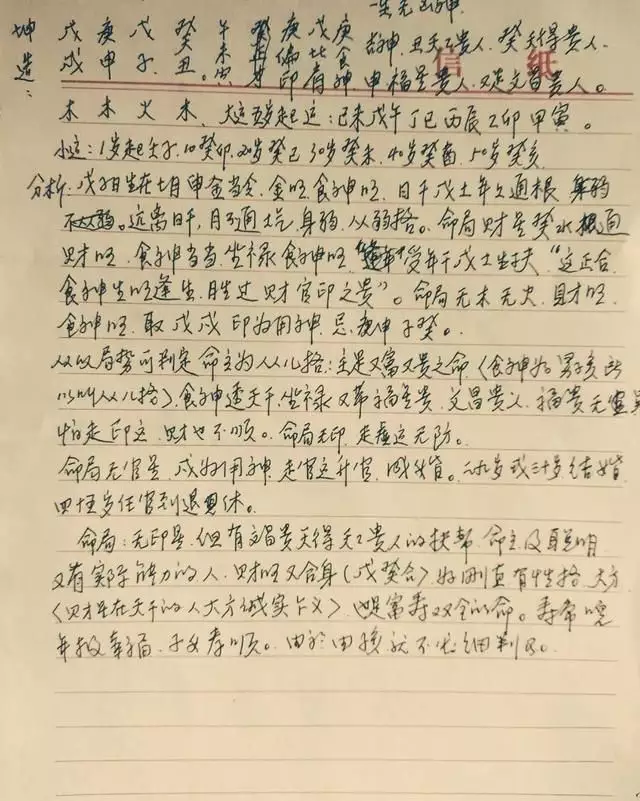 一生无凶神
坤 戊 庚 戊 癸 午 癸 庚 戊 庚 吉神：丑天乙贵人，癸天德贵人
造： 戌 申 子 丑。未 丑 偏 比 食 印 肩 神，申福星贵人，又是文昌贵人。
信 纸
木 木 火 木，大运五岁起运：己未戊午丁巳丙辰乙卯甲寅。
小运：1岁起壬子，10癸卯，20岁癸巳30岁癸未，40岁癸酉，50岁癸亥
分析：戊子日生在七月申金当令，金旺，食神旺，日干戊土年久通根 身弱
不从弱。远离日干，月不通土气，身弱，从弱格。命局财星癸水
财旺，食神当当坐禄食神旺，受年干戊土生扶"这正合
食神生旺逢生，胜过财官印之贵"。命局无木无火，财旺
食神旺，取戊戌印为用神，忌庚申子癸。
从以局势可判定命主为从儿格：主是又富又贵之命（食神为男孩所
以叫从儿格），食神透天干，坐禄又带福星贵，文昌贵人，福贵无
怕走印运，财也不顺。命局无印，走运无防。
命局无官星，戌为用神，走官运升官，或结婚。二九岁或三十岁结婚
四十五岁任官到退休。
命局：无印星，但有文昌贵天德天乙贵人的扶帮，命主及聪明
又有实际能力的人，财旺又合身（戊癸合）好刚直有性格，大方
（财星在天干的人大方诚实仗义）也是富寿双全的命。寿常晚
年放幸福，子女孝顺。由於由孩就不长细判了。